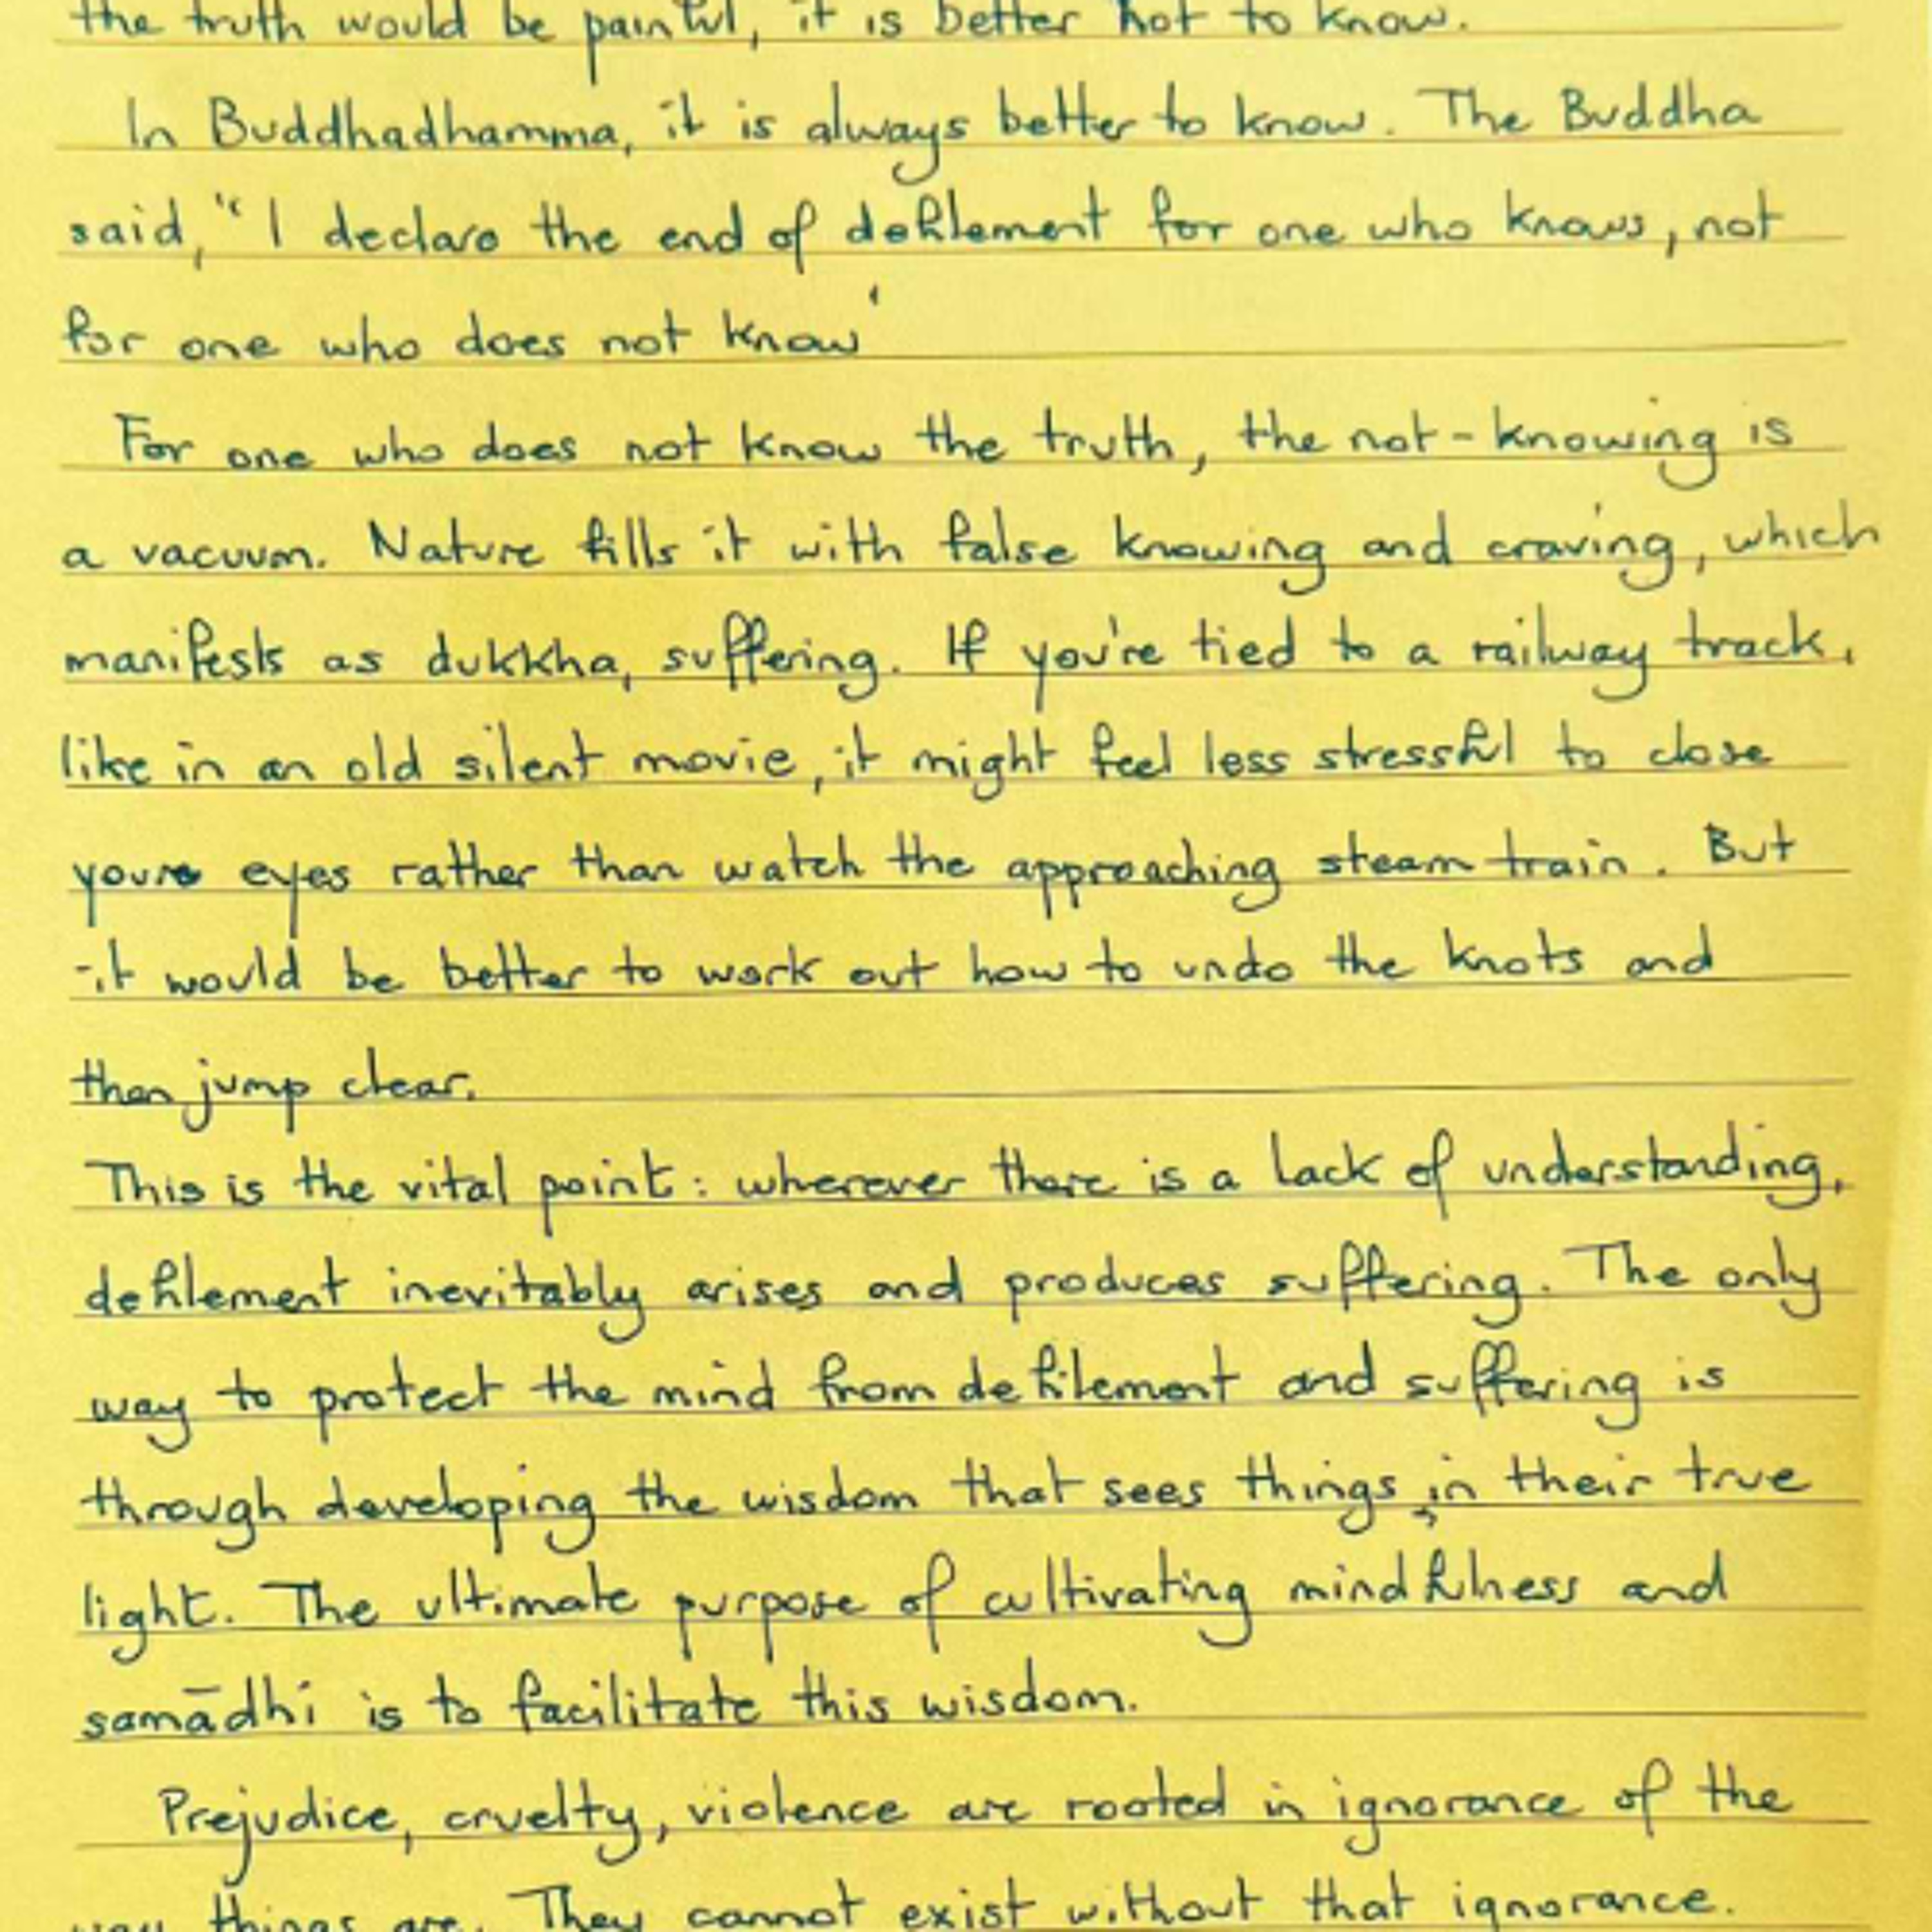 the truth would be painful, it is better not to know.
In Buddhadhamma, it is always better to know. The Buddha
said, "I declare the end of defilement for one who knows, not
for one who does not know'
For one who does not know the truth, the not-knowing is
a vacuum. Nature fills it with false knowing and craving, which
manifests as dukkha, suffering. If you're tied to a railway track,
like in an old silent movie, it might feel less stressful to close
your eyes rather than watch the approaching steam train. But
it would be better to work out how to undo the knots and
then jump clear.
This is the vital point: wherever there is a lack of understanding,
defilement inevitably arises and produces suffering. The only
way to protect the mind from defilement and suffering is
through developing the wisdom that sees things in their true
light. The ultimate purpose of cultivating mindfulness and
samādhi is to facilitate this wisdom.
Prejudice, cruelty, violence are rooted in ignorance of the
way things are. They cannot exist without that ignorance.